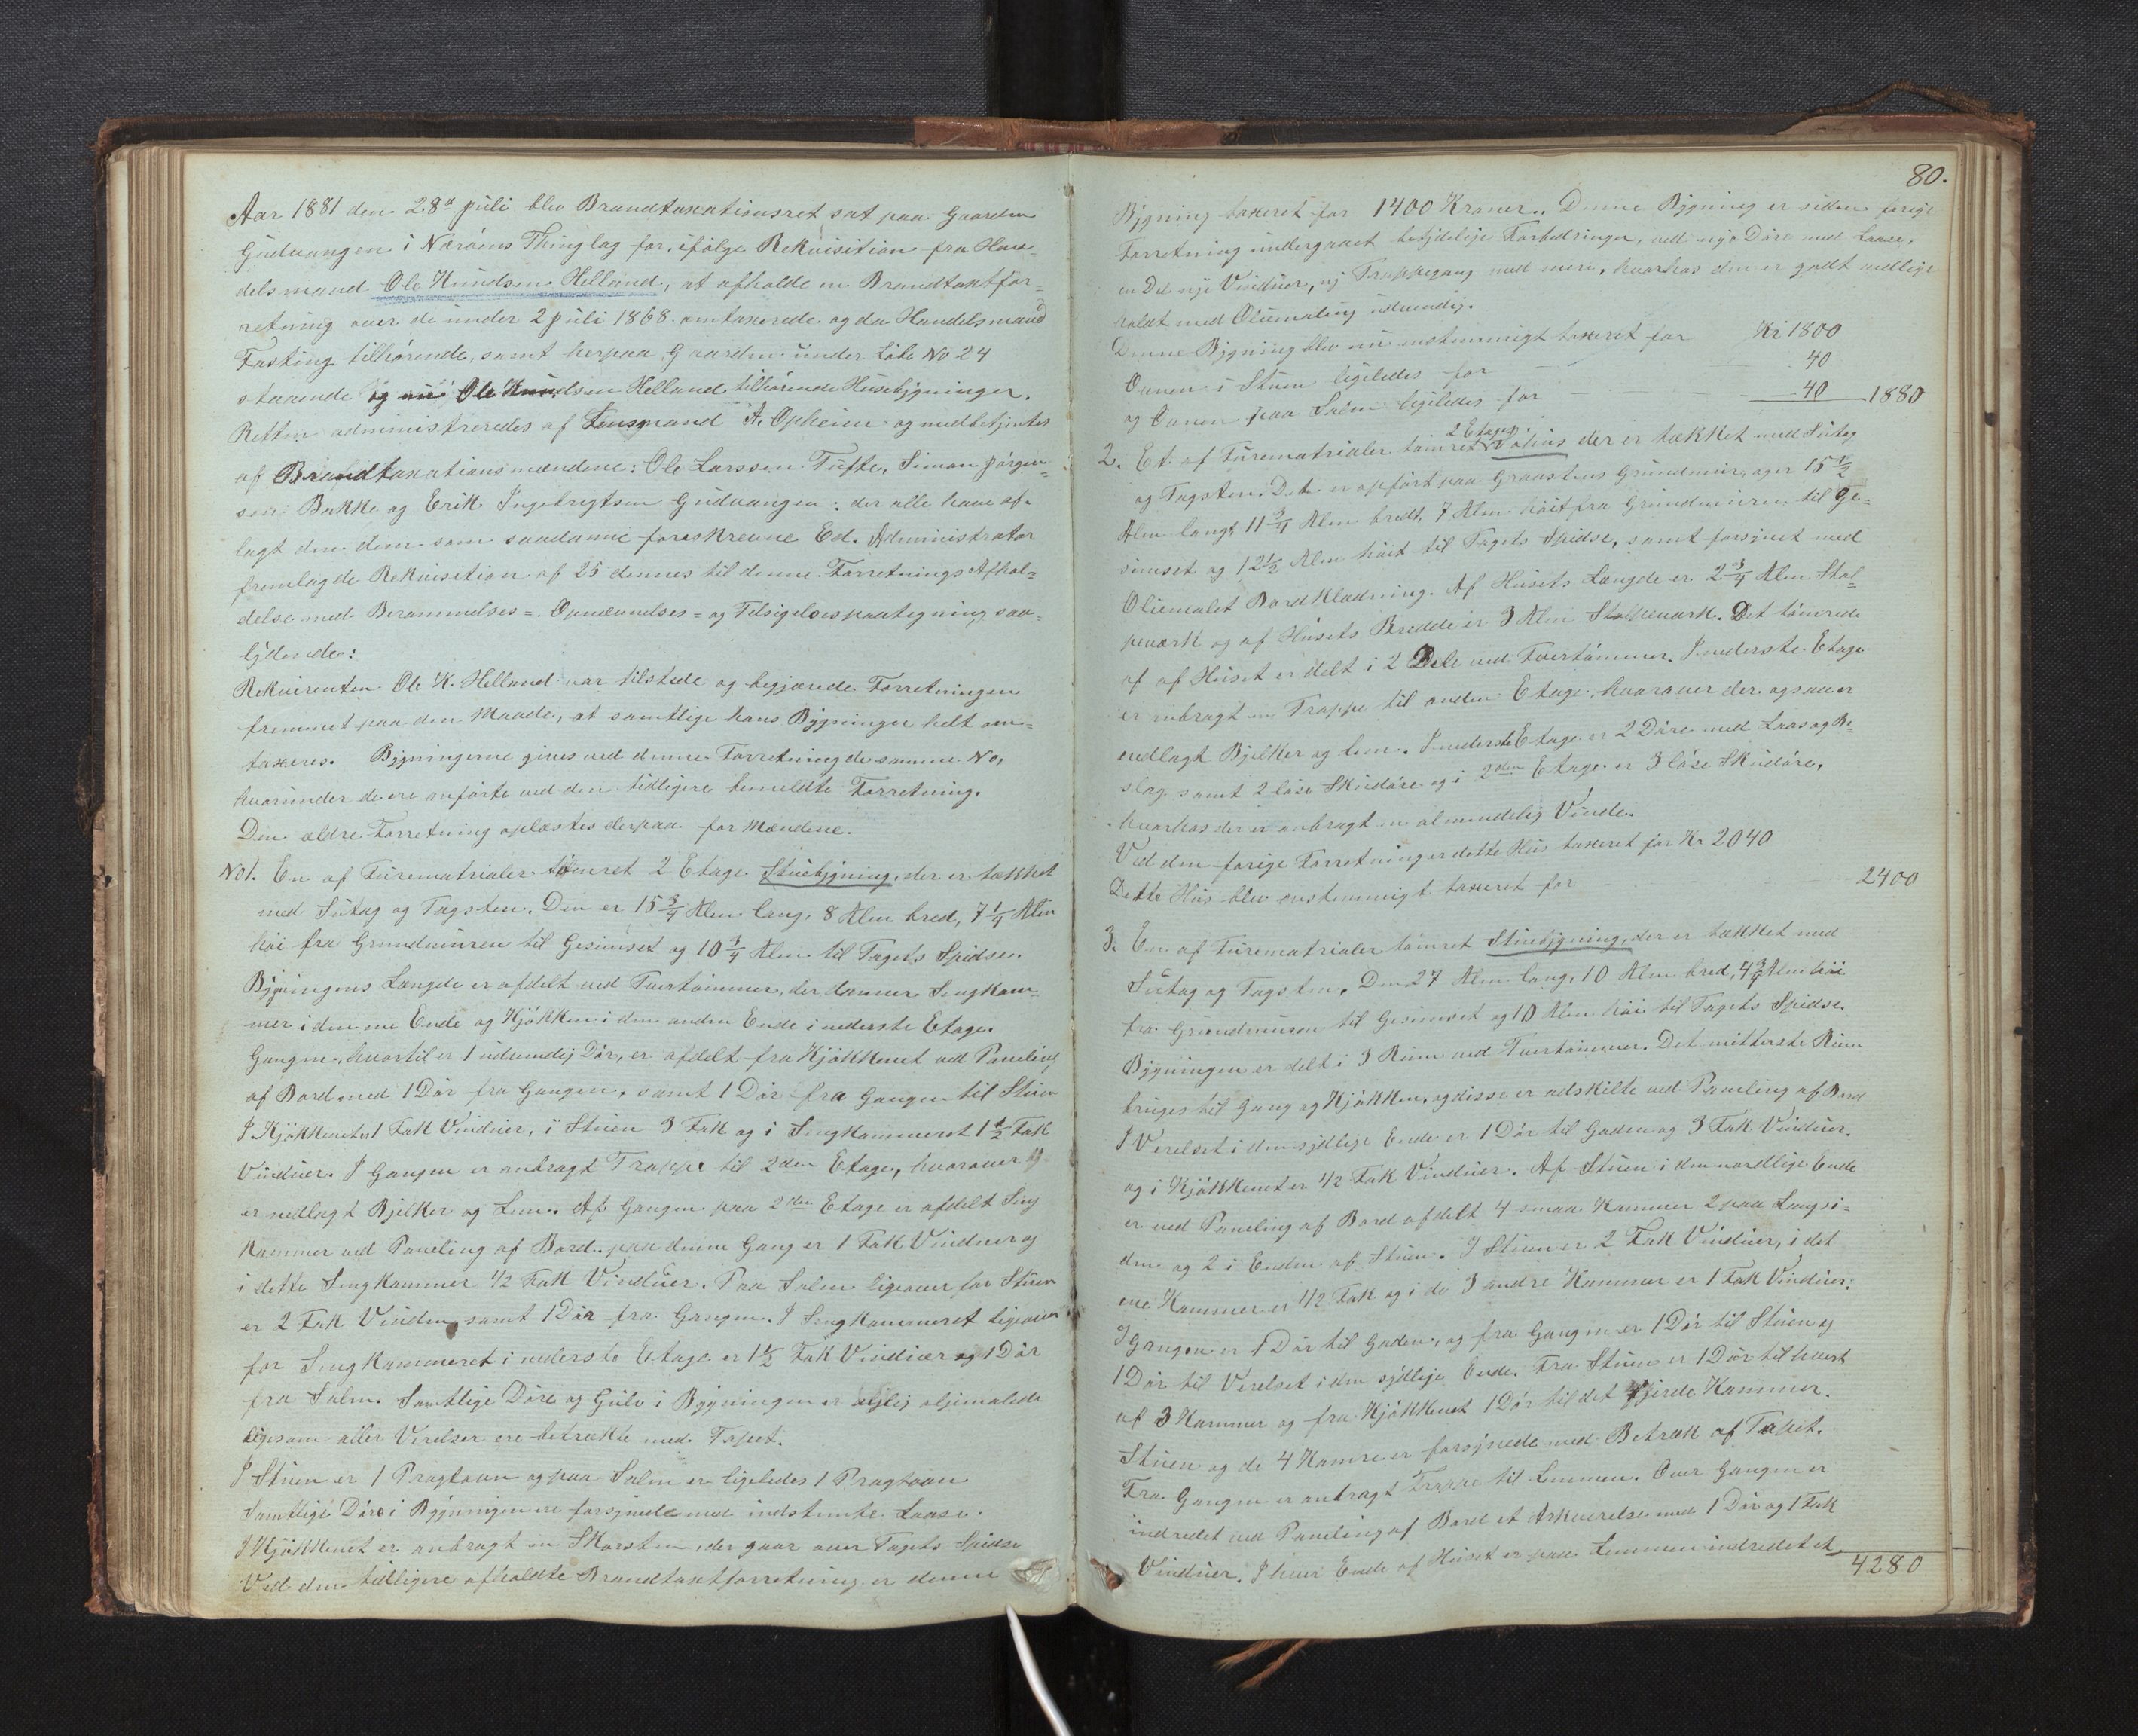 Aar 1881 den 28de Juli blev Brandtaxationsret sat paa Gaarden
Gudvangen i Nærøens Thinglag for, ifølge Rekvisition fra Han-
delsmand Ole Knudsen Helland, at afholde en Brandtaxtfor-
retning over de under 2 Juli 1868 omtaxerede og da Handelsmand
Fasting tilhørende, samt herpaa Gaarden under Løbe No 24
staaende og nu Ole Knudsen Helland tilhørende Husebygninger.
Retten administreredes af Lensmand A. Opheim og medbetjentes
af Brandtaxationsmændene: Ole Larssen Tufte, Simon Jørgen-
sen Bakke og Erik Ingebrigtsen Gudvangen: der alle have af-
lagt den dem som saadanne foreskrevne Ed. Administrator
fremlagde Rekvisition af 25 dennes til denne Forretnings Afhol-
delse med Berammelses- Opnævnelses- og Tilsigelsespaategning saa-
lydende:
Rekvirenten Ole K. Helland var tilstede og begjærede Forretningen
fremmet paa den Maade, at samtlige hans Bygninger helt om-
taxeres. Bygningerne gives ved denne Forretning de samme No,
hvorunder de ere anførte ved den tidligere bemeldte Forretning.
Den ældre Forretning oplæstes derpaa for Mændene.
No 1. En af Furematrialer tømret 2 Etage Stuebygning, der er tækket
med Sutag og Tagsten. Den er 15 3/4 Alen lang, 8 Alen bred, 7 1/4 Alen
høi fra Grundmuren til Gesimset og 10 3/4 Alen til Tagets Spidse.
Bygningens Længde er afdelt ved Tvertømmer, der danner Sengkam-
mer i den ene Ende og Kjøkken i den anden Ende i nederste Etage.
Gangen, hvortil er 1 udvendig Dør, er afdelt fra Kjøkkenet ved Paneling
af Bord med 1 Dør fra Gangen, samt 1 Dør fra Gangen til Stuen
I Kjøkkenet er 1 Fak Vinduer, i Stuen 3 Fak og i Sengkammeret 1 1/2 Fak
Vinduer. I Gangen er anbragt Trappe til 2den Etage, hvorover og
er nedlagt Bjelker og Lem. Af Gangen paa 2den Etage er afdelt Seng
Kammer ved Paneling af Bord. paa denne Gang er 1 Fak Vinduer og
i dette Sengkammer 1/2 Fak Vinduer. Paa Salen ligeover for Stuen
er 2 Fak Vinduer, samt 1 Dør fra Gangen. I Sengkammeret ligeover
for Sengkammeret i nederste Etage er 1 1/2 Fak Vinduer og 1 Dør
fra Salen. Samtlige Døre og Gulv i Bygningen er oljemalede
ligesom aller Værelser ere betrukte med Tapet.
I Stuen er 1 Pragtovn og paa Salen er ligeledes 1 Pragtovn
Samtlige Døre i Bygningen ere forsynede med indstemte Laase.
I Kjøkkenet er anbragt en Skorsten, der gaar over Tagets Spidse
Ved den tidligere afholdte Brandtaxtforretning er denne
80.
Bygning taxeret for 1400 Kroner. Denne Bygning er siden forige
Forretning undergaaet betydelige Forbedringer, ved nye Døre med Laase,
en Del nye Vinduer, ny Trappegang med mere, hvorhos den er godt vedlige
holdt med Oliemaling udvendig.
Denne Bygning blev nu enstemmigt taxeret for Kr 1800
Ovnen i Stuen ligeledes for 40
og Ovnen paa Salen ligeledes for 40 1880
2. Et af Furematrialer tømret 2 Etages der er tækket med Sutag
og Tagsten. Det er opført paa Graastens Grundmur, og er 15 1/2
Alen langt, 11 3/4 Alen bredt, 7 Alen høit fra Grundmuren til Ge-
simset og 12 1/2 Alen høit til Tagets Spidse, samt forsynet med
Oliemalet Bordklædning. Af Husets Længde er 2 3/4 Alen Stol-
peværk og af Husets Bredde er 3 Alen Stolpeværk. Det tømrede
af af Huset er delt i 2 Dele ved Tvertømmer. I nederste Etage
er anbragt en Trappe til anden Etage, hvorover der ogsaa er
nedlagt Bjelker og Lem. I nederste Etage er 2 Døre med Laas og Be-
slag samt 2 løse Skuddøre og i 2den Etage er 3 løse Skuddøre,
hvorhos der er anbragt en almindelig Vinde.
Ved den forige Forretning er dette Hus taxeret for Kr 2040
Dette Hus blev enstemmigt taxeret for 2400
3. En af Furematrialer tømret Stuebygning, der er tækket med
Sutag og Tagsten. Den 27 Alen lang, 10 Alen bred, 4 3/4 Alen høi
fra Grundmuren til Gesimset og 10 Alen høi til Tagets Spidse.
Bygningen er delt i 3 Rum ved Tvertømmer. Det mitterste Rum
bruges til Gang og Kjøkken, og disse er adskilte ved Paneling af Bord
I Værelset i den sydlige Ende er 1 Dør til Gaden og 3 Fak Vinduer.
og i Kjøkkenet er 1/2 Fak Vinduer. Af Stuen i den nordlige Ende
er ved Paneling af Bord afdelt 4 smaa Kammer 2 paa Langsi-
den og 2 i Enden af Stuen. I Stuen er 2 Fak Vinduer, i det
ene Kammer er 1/2 Fak og i de 3 andre Kammer er 1 Fak Vinduer:
I Gangen er 1 Dør til Gaden, og fra Gangen er 1 Dør til Stuen og
1 Dør til Værelset i den sydlige Ende. Fra Stuen er 1 Dør til hvert
af 3 Kammer og fra Kjøkkenet 1 Dør til det fjerde Kammer.
Stuen og de 4 Kamre er forsynede med Betræk af Tapet.
Fra Gangen er anbragt Trappe til Lemmen. Over Gangen er
indredet ved Paneling af Bord et Arkværelse med 1 Dør og 1 Fak
Vinduer. I hver Ende af Huset er paa Lemmen indredet et
4280